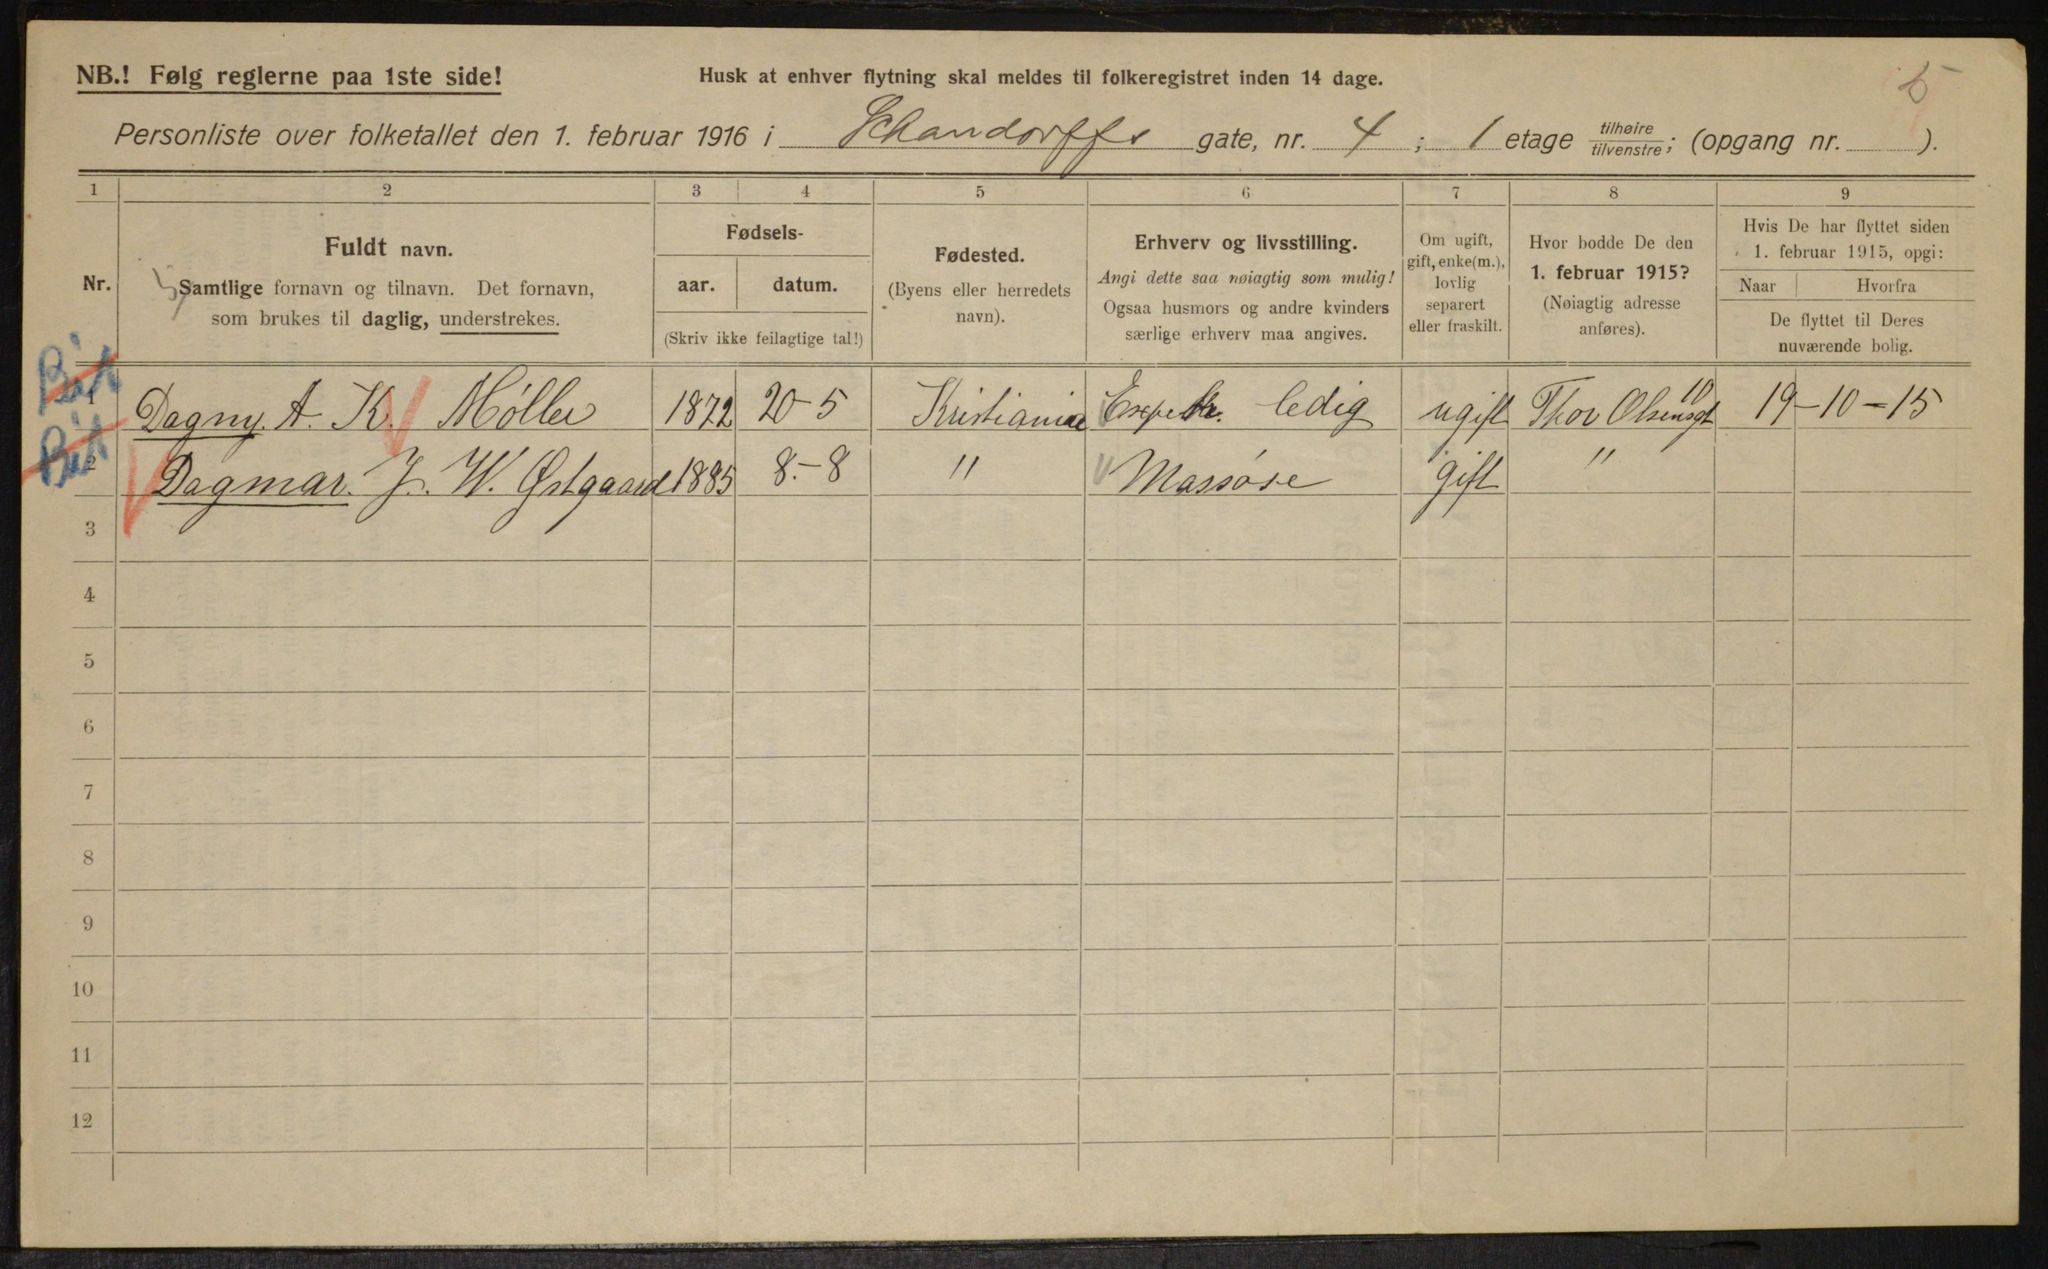 NB.! Følg reglerne paa 1ste side!
Husk at enhver flytning skal meldes til folkeregistret inden 14 dage.
5
Personliste over folketallet den 1. februar 1916 i Schandorffs gate, nr. 4; 1 etage tilhøire tilvenstre; (opgang nr. ).
1 2 3 4 5 6 7 8 9
Nr.
Fuldt navn.
Samtlige fornavn og tilnavn. Det fornavn,
som brukes til daglig, understrekes.
Fødsels-
aar. datum.
(Skriv ikke feilagtige tal!)
Fødested.
(Byens eller herredets
navn).
Erhverv og livsstilling.
Angi dette saa nøiagtig som mulig!
Ogsaa husmors og andre kvinders
særlige erhverv maa angives.
Om ugift,
gift, enke(m.),
lovlig
separert
eller fraskilt.
Hvor bodde De den
1. februar 1915?
(Nøiagtig adresse
anføres).
Hvis De har flyttet siden
1. februar 1915, opgi:
Naar Hvorfra
De flyttet til Deres
nuværende bolig.
1 Dagny A. K. Møller 1872 20-5 Kristiania ledig ugift Thor Olsensgt 10 19-10-15
2 Dagmar. J. W. Østgaard 1885 8.-8 " Massøse gift "
3
4
5
6
7
8
9
10
11
12